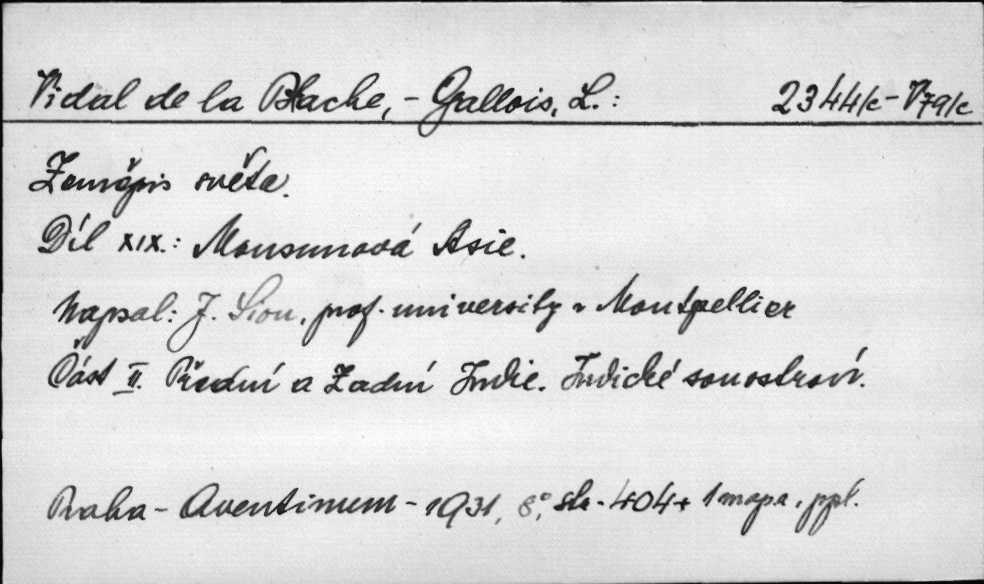 Vidal de la Blache, - Gallois, L.: 2344/c - V79/c
Zeměpis světa.
Díl XIX.: Monsunová Asie.
Napsal: J. Sion, prof. university v Montpellier
Část II. Přední a Zadní Indie. Indické souostroví.
Praha - Aventinum - 1931, 8°, str. 404 + 1 mapa, ppl.